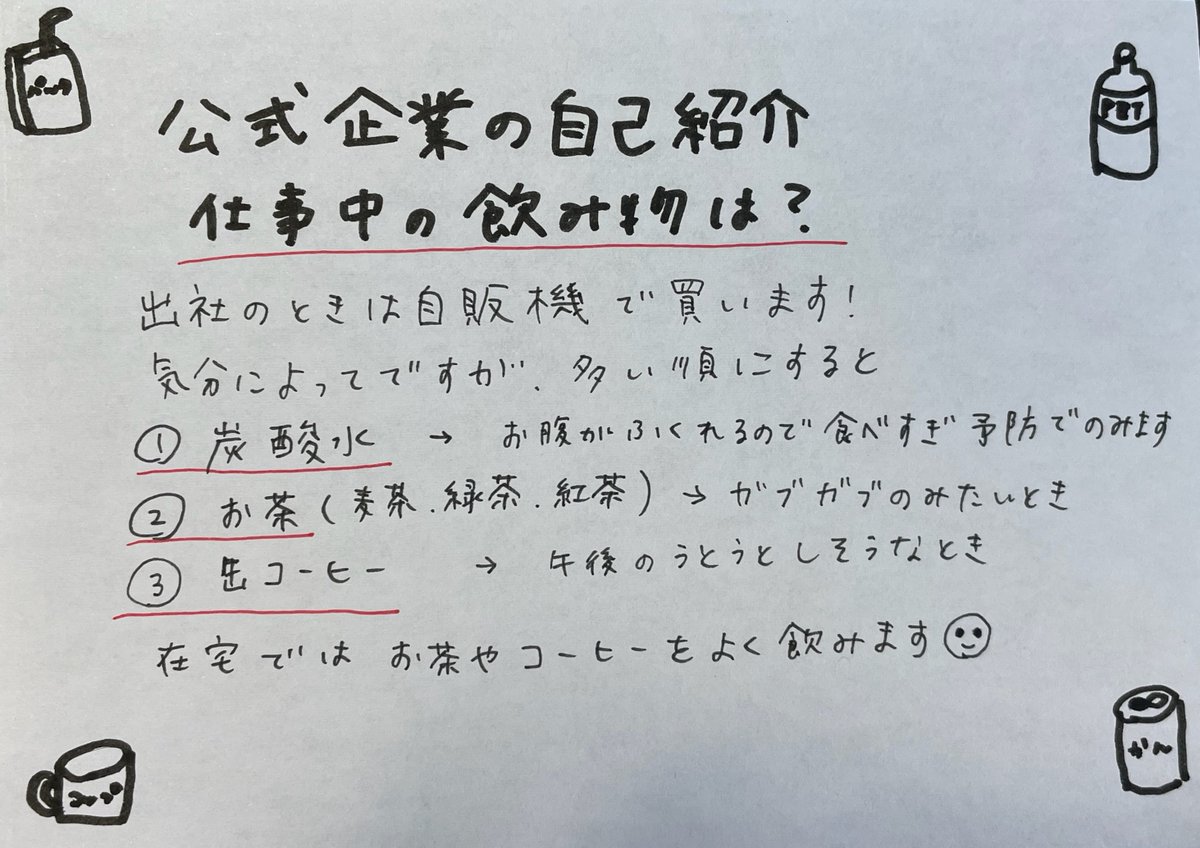 パック
PET
公式企業の自己紹介
仕事中の飲み物は？
出社のときは自販機で買います！
気分によってですが、多い順にすると
① 炭酸水 → お腹がふくれるので食べすぎ予防でのみます
② お茶（麦茶.緑茶.紅茶）→ ガブガブのみたいとき
③ 缶コーヒー → 午後のうとうとしそうなとき
在宅では お茶やコーヒーをよく飲みます
コップ
かん